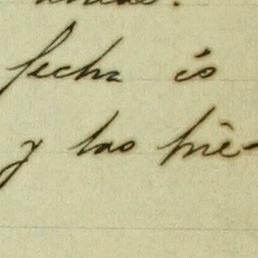 fecha és
y las pie-